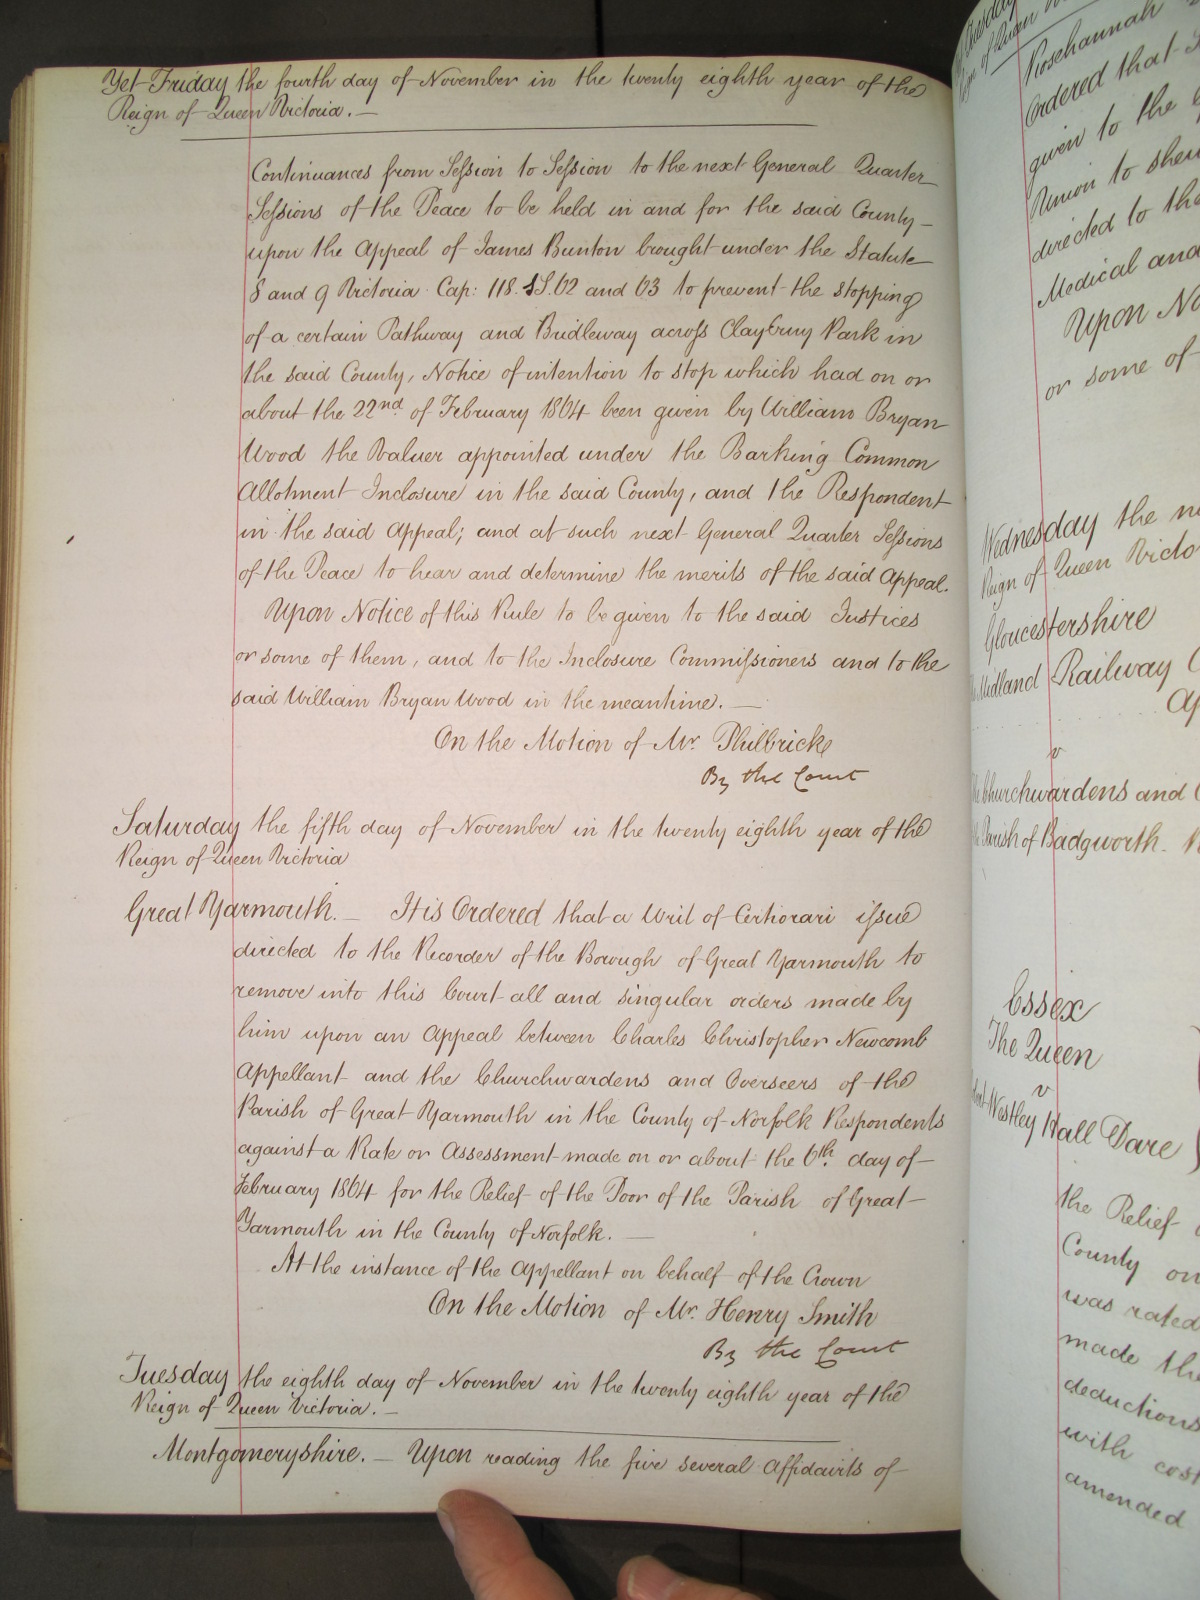 Yet Friday the fourth day of November in the twenty eighth year of the
Reign of Queen Victoria. —
Continuances from Session to Session to the next General Quarter
Sessions of the Peace to be held in and for the said County
upon the Appeal of James Bunton brought under the Statute
8 and 9 Victoria Cap: 118. SS. 62 and 63 to prevent the stopping
of a certain Pathway and Bridleway across Claybury Park in
the said County, Notice of intention to stop which had on or
about the 22nd of February 1864 been given by William Bryan
Wood the Valuer appointed under the Barking Common
Allotment Inclosure in the said County, and the Respondent
in the said Appeal; and at such next General Quarter Sessions
of the Peace to hear and determine the merits of the said Appeal.
Upon Notice of this Rule to be given to the said Justices
or some of them, and to the Inclosure Commissioners and to the
said William Bryan Wood in the meantime. —
On the Motion of Mr. Philbricke
By the Court
Saturday the fifth day of November in the twenty eighth year of the
Reign of Queen Victoria
Great Yarmouth. — It is Ordered that a Writ of Certiorari issue
directed to the Recorder of the Borough of Great Yarmouth to
remove into this Court all and singular orders made by
him upon an Appeal between Charles Christopher Newcomb
Appellant and the Churchwardens and Overseers of the
Parish of Great Yarmouth in the County of Norfolk Respondents
against a Rate or Assessment made on or about the 6th. day of
February 1864 for the Relief of the Poor of the Parish of Great
Yarmouth in the County of Norfolk. —
At the instance of the Appellant on behalf of the Crown
On the Motion of Mr. Henry Smith
By the Court
Tuesday the eighth day of November in the twenty eighth year of the
Reign of Queen Victoria. —
Montgomeryshire. — Upon reading the five several Affidavits of
Rosehannah
Ordered that
given to the
Union to shew
directed to the
Medical and
Upon No
or some of
Wednesday the
Reign of Queen Victo
Gloucestershire
Midland Railway
v
Churchwardens and
Parish of Badgworth.
Essex
The Queen
v
Westley Hall Dare
the Relief
County on
was rated
made the
deductions
with cost
amended